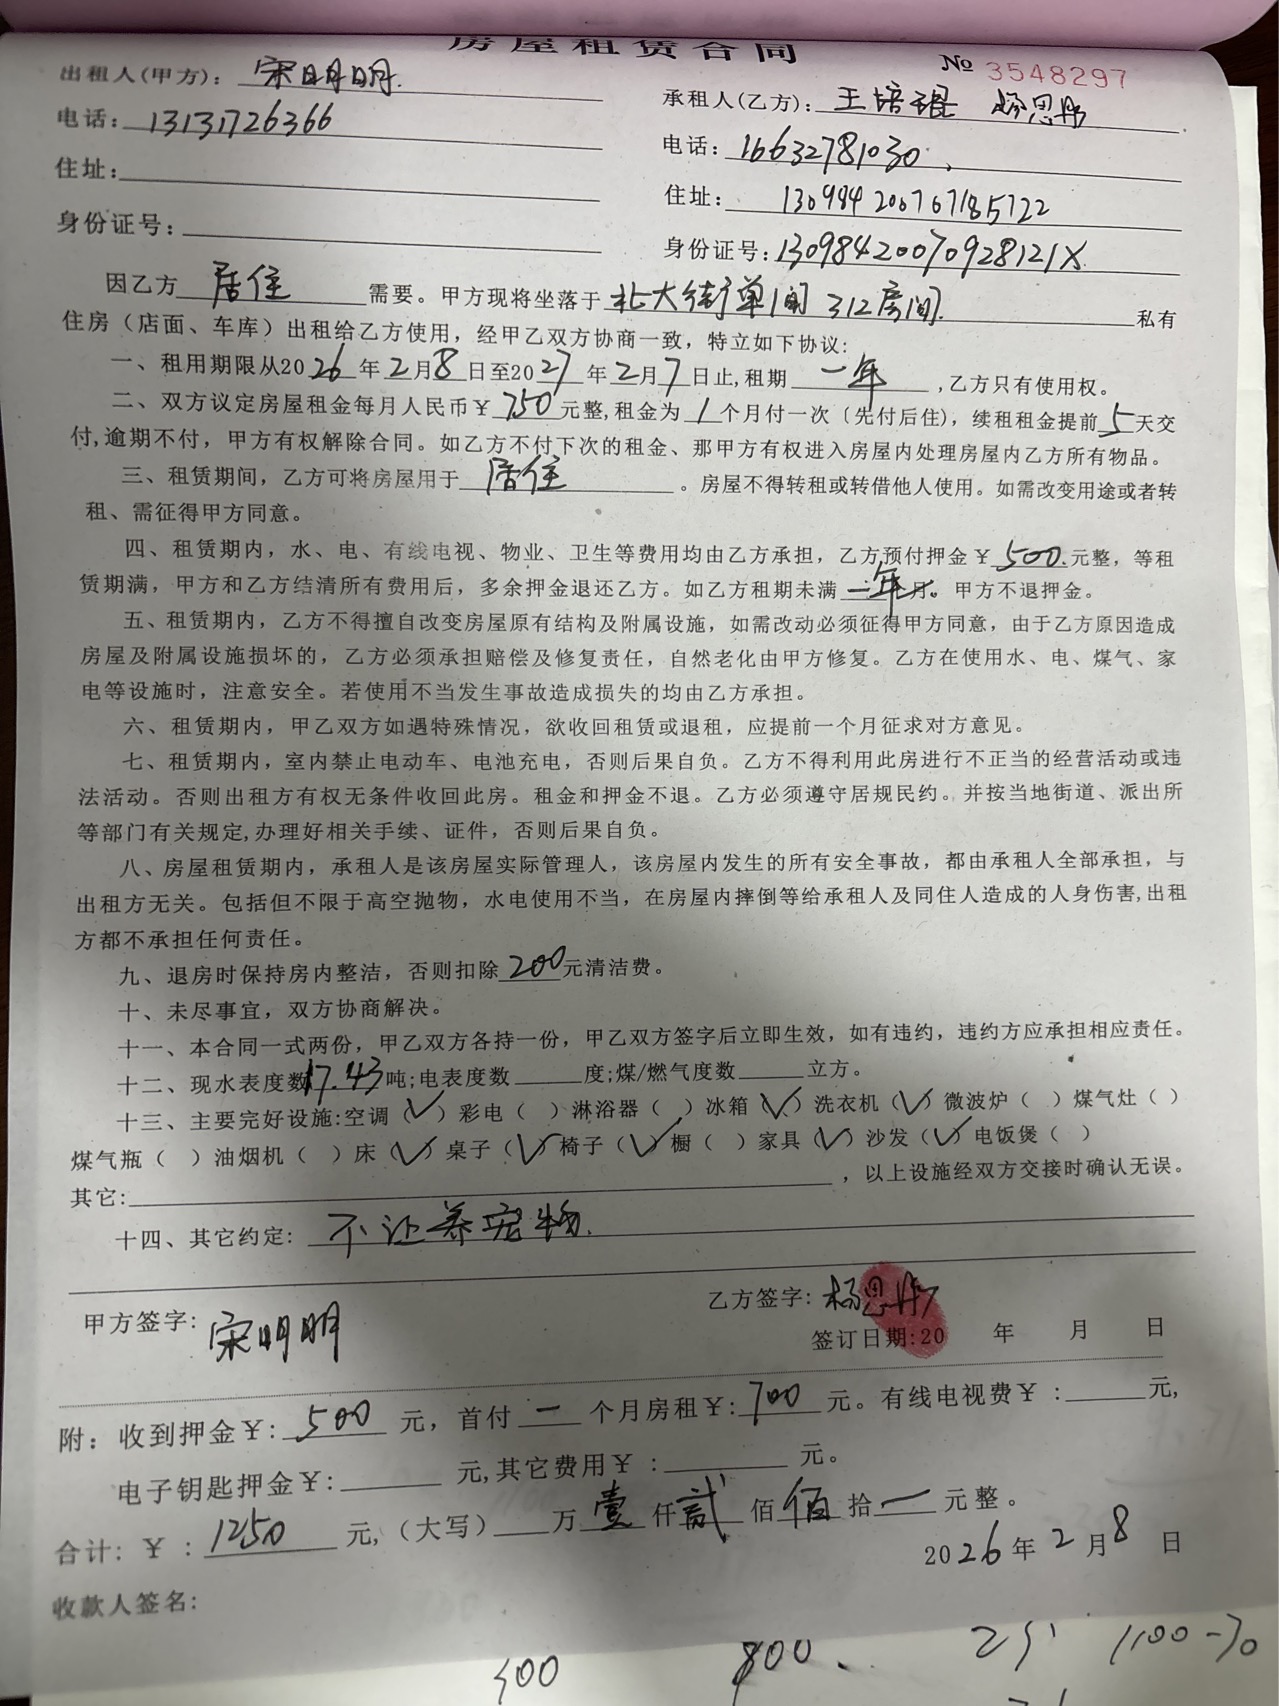 房屋租赁合同
№ 3548297
出租人(甲方): 宋明明
承租人(乙方): 王培琨 杨思彤
电话: 13131726366
电话: 16632781030
住址:
住址: 130984200767185722
身份证号:
身份证号: 13098420070928121X
因乙方 居住 需要。甲方现将坐落于 北大街单间 312房间 私有
住房（店面、车库）出租给乙方使用，经甲乙双方协商一致，特立如下协议:
一、租用期限从2026年2月8日至2027年2月7日止,租期 一年 ,乙方只有使用权。
二、双方议定房屋租金每月人民币￥750元整,租金为1个月付一次（先付后住），续租租金提前5天交
付,逾期不付，甲方有权解除合同。如乙方不付下次的租金、那甲方有权进入房屋内处理房屋内乙方所有物品。
三、租赁期间，乙方可将房屋用于 居住 。房屋不得转租或转借他人使用。如需改变用途或者转
租、需征得甲方同意。
四、租赁期内，水、电、有线电视、物业、卫生等费用均由乙方承担，乙方预付押金￥500元整，等租
赁期满，甲方和乙方结清所有费用后，多余押金退还乙方。如乙方租期未满 一年 月。甲方不退押金。
五、租赁期内，乙方不得擅自改变房屋原有结构及附属设施，如需改动必须征得甲方同意，由于乙方原因造成
房屋及附属设施损坏的，乙方必须承担赔偿及修复责任，自然老化由甲方修复。乙方在使用水、电、煤气、家
电等设施时，注意安全。若使用不当发生事故造成损失的均由乙方承担。
六、租赁期内，甲乙双方如遇特殊情况，欲收回租赁或退租，应提前一个月征求对方意见。
七、租赁期内，室内禁止电动车、电池充电，否则后果自负。乙方不得利用此房进行不正当的经营活动或违
法活动。否则出租方有权无条件收回此房。租金和押金不退。乙方必须遵守居规民约。并按当地街道、派出所
等部门有关规定,办理好相关手续、证件，否则后果自负。
八、房屋租赁期内，承租人是该房屋实际管理人，该房屋内发生的所有安全事故，都由承租人全部承担，与
出租方无关。包括但不限于高空抛物，水电使用不当，在房屋内摔倒等给承租人及同住人造成的人身伤害,出租
方都不承担任何责任。
九、退房时保持房内整洁，否则扣除200元清洁费。
十、未尽事宜，双方协商解决。
十一、本合同一式两份，甲乙双方各持一份，甲乙双方签字后立即生效，如有违约，违约方应承担相应责任。
十二、现水表度数17.43吨;电表度数 度;煤/燃气度数 立方。
十三、主要完好设施:空调（✓）彩电（ ）淋浴器（ ）冰箱（✓）洗衣机（✓）微波炉（ ）煤气灶（ ）
煤气瓶（ ）油烟机（ ）床（✓）桌子（✓）椅子（✓）橱（ ）家具（✓）沙发（✓）电饭煲（ ）
其它: ，以上设施经双方交接时确认无误。
十四、其它约定: 不让养宠物.
甲方签字: 宋明明
乙方签字: 杨思彤
签订日期:20 年 月 日
附: 收到押金￥: 500 元，首付 一 个月房租￥: 700 元。有线电视费￥: 元,
电子钥匙押金￥: 元,其它费用￥: 元。
合计: ￥: 1250 元,（大写） 万 壹 仟 贰 佰 佰 拾 一 元整。
2026年2月8日
收款人签名:
800.